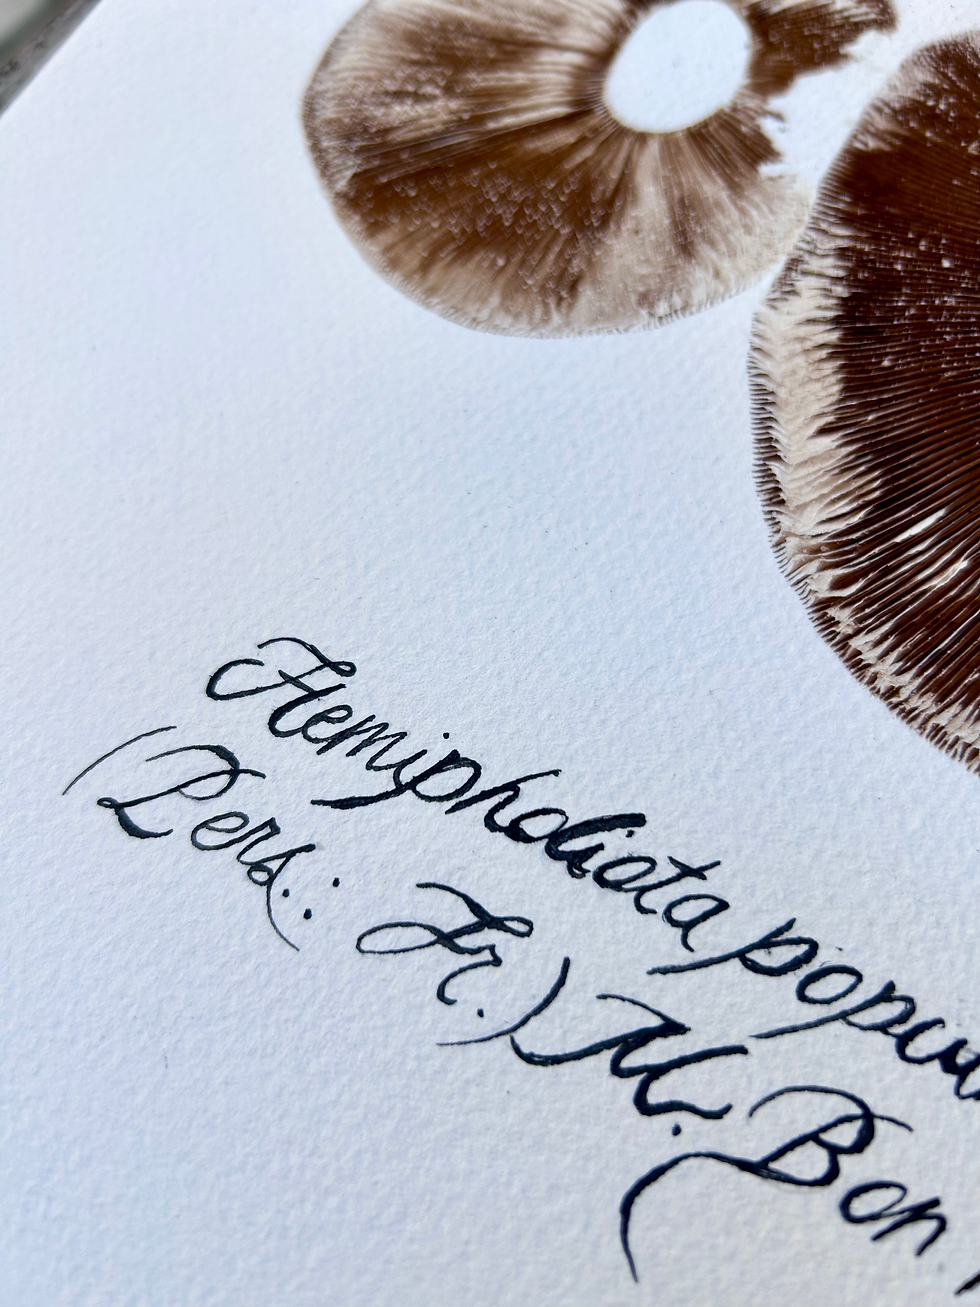 Hemipholiota popul
(Pers.: Fr.) M. Bon